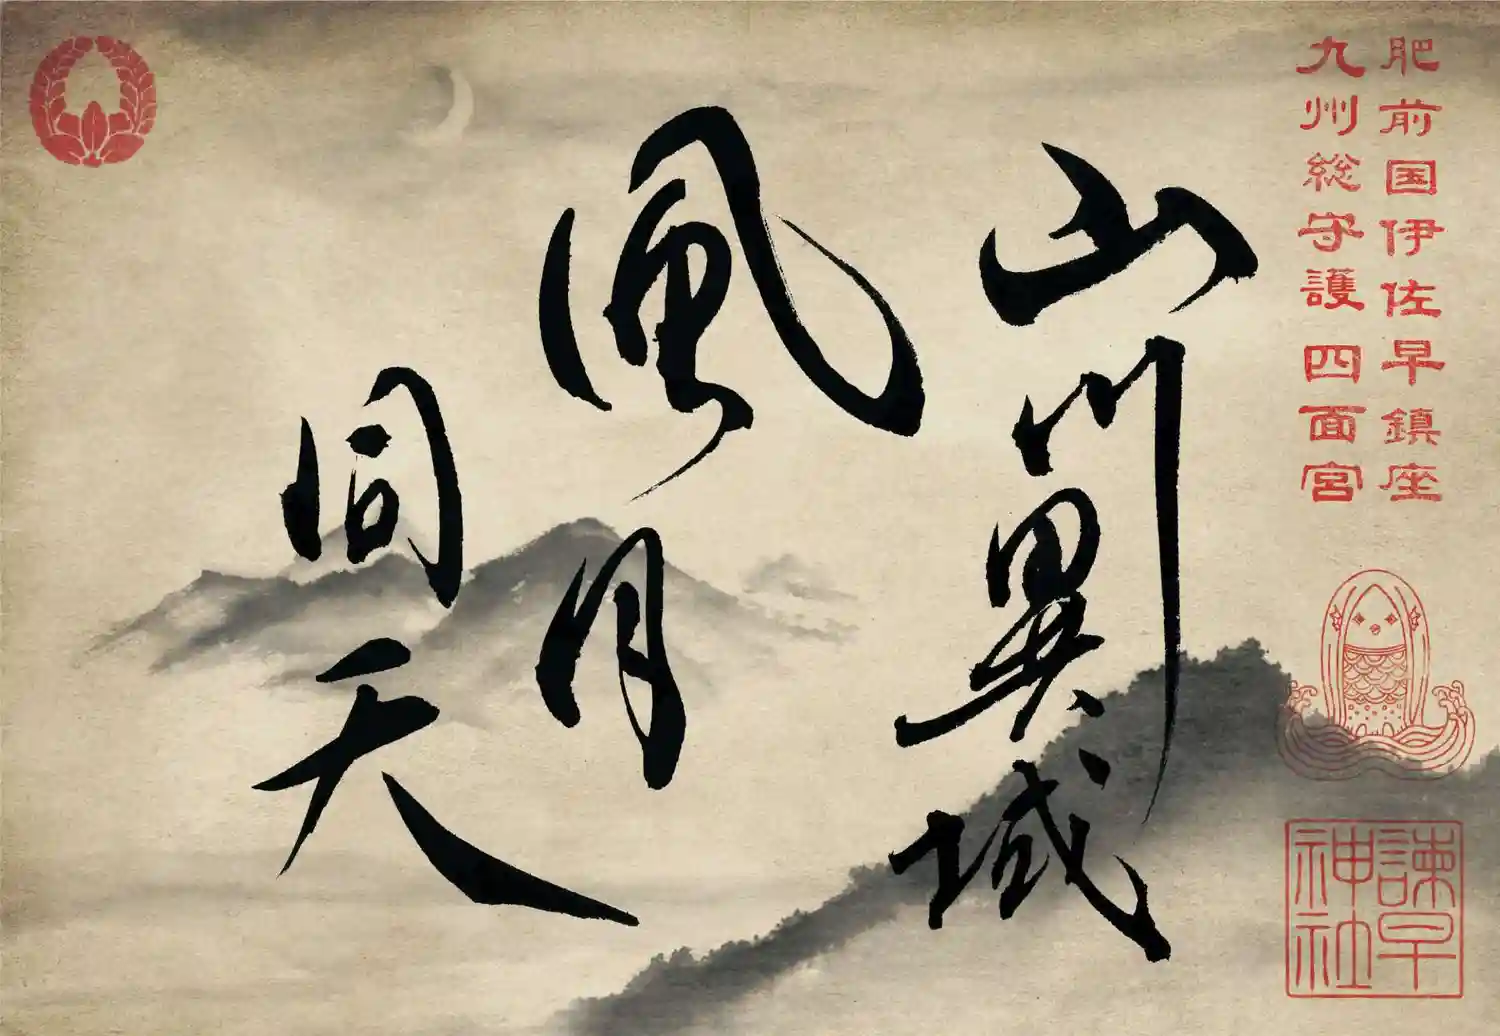 肥前国伊佐早鎮座
九州総守護 四面宮
山川異域
風月同天
諫早
神社